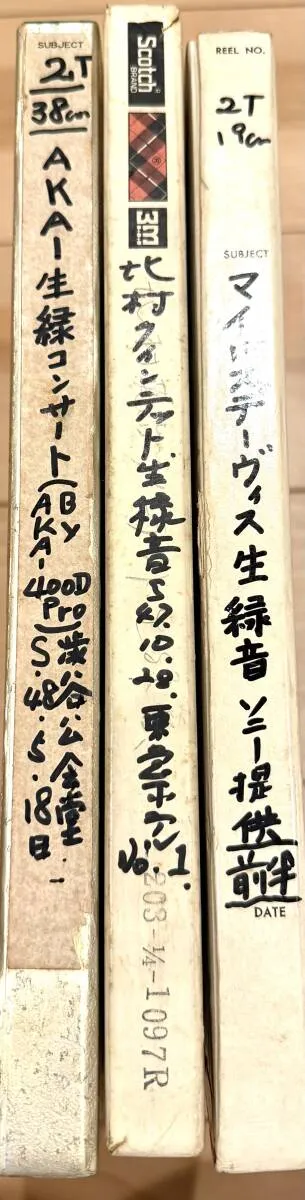 SUBJECT
2T
38cm
AKAI生録コンサート(By
AKAI 400D
Pro)
渋谷公会堂.
S.48.5.18日
Scotch
BRAND
3M
北村クインテット生録音S47.10.28.東急ホテル
Vo.1.
203-¼-1097R
REEL NO.
2T
19cm
SUBJECT
マイルスデーヴィス生録音ソニー提供
前半
DATE